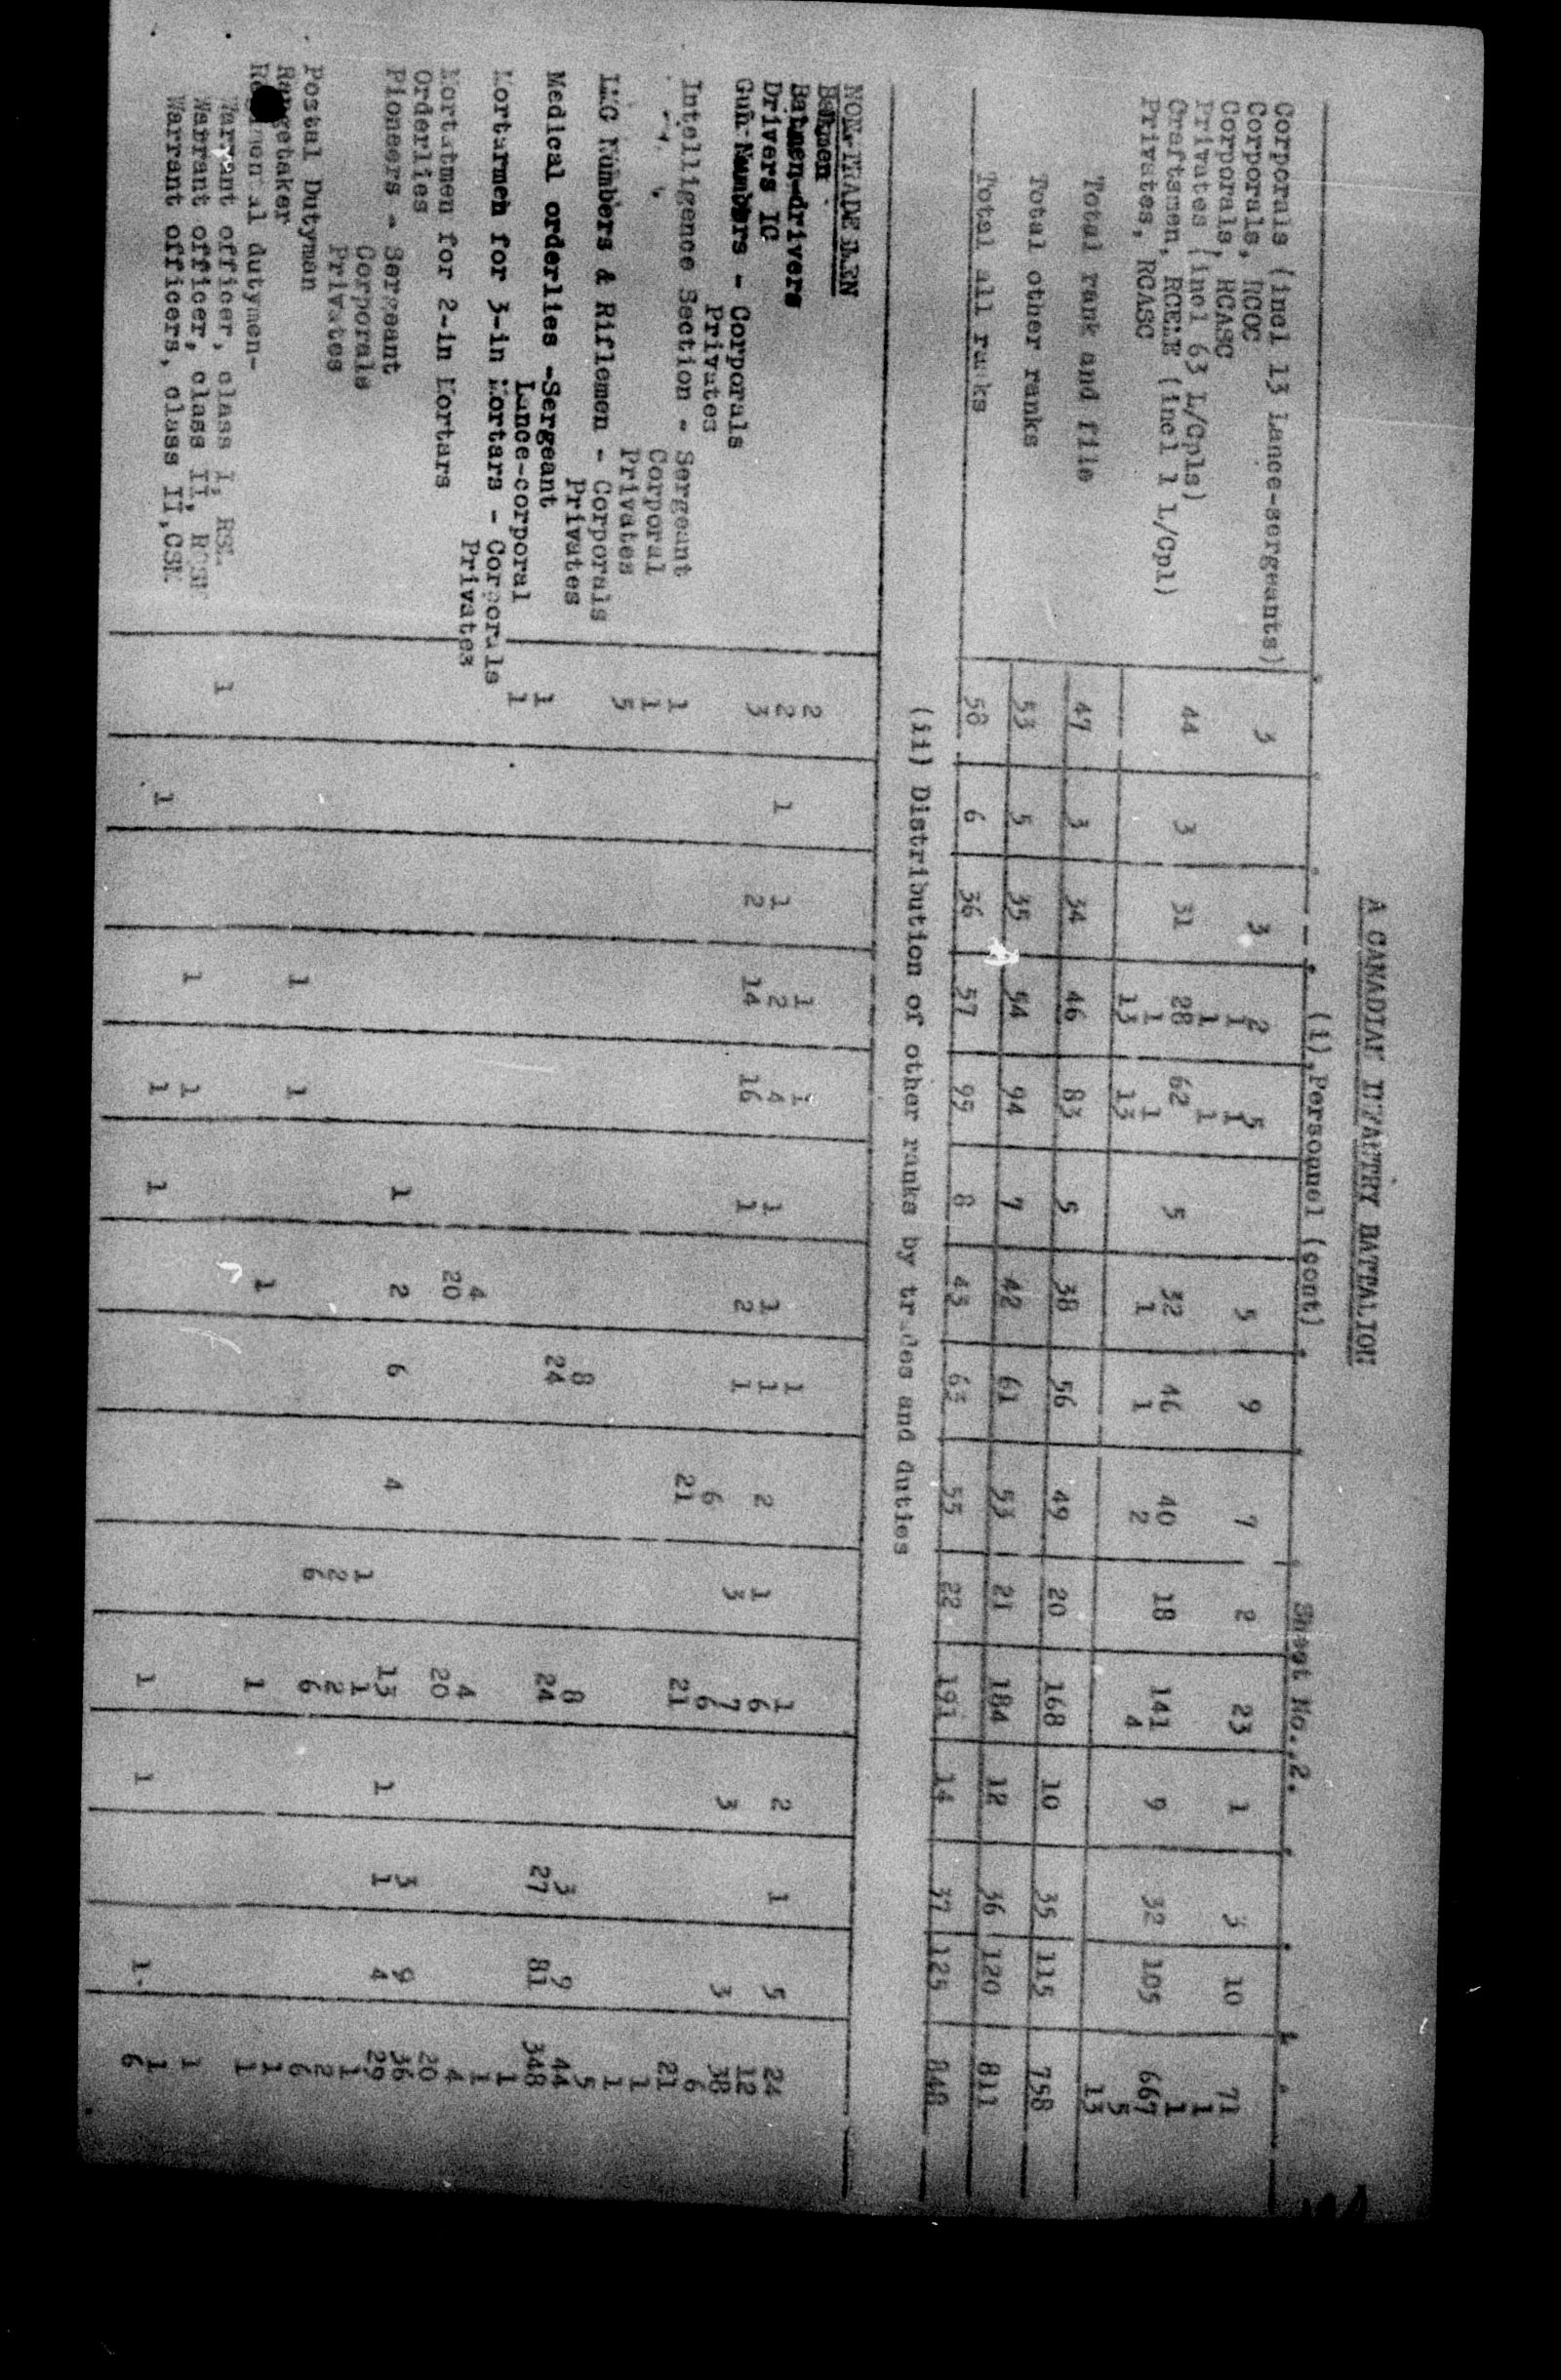 A CANADIAN INFANTRY BATTALION
(i) Personnel (cont) Sheet No. 2.
Corporals (incl 13 Lance-sergeants) 3 3 2 5 5 9 7 2 23 1 3 10 71
Corporals, RCOC 1 1 1
Corporals, RCASC 1 1 1
Privates (incl 63 L/Cpls) 44 3 31 28 62 5 32 46 40 18 141 9 32 105 667
Craftsmen, RCEME (incl 1 L/Cpl) 1 1 1 1 2 4 5
Privates, RCASC 13 13 13
Total rank and file 47 3 34 46 83 5 38 56 49 20 168 10 35 115 758
Total other ranks 53 5 35 54 94 7 42 61 53 21 184 12 36 120 811
Total all ranks 58 6 36 57 99 8 43 63 55 22 191 14 37 125 848
(ii) Distribution of other ranks by trades and duties
NON-TRADESMEN
Batmen 2 1 1 1 1 2 1 5 24
Batmen-drivers 2 1 1 2 4 1 1 1 2 1 6 12
Drivers IC 3 2 14 16 1 2 1 3 7 3 3 38
Gun Numbers - Corporals 6 6 6
Privates 21 21 21
Intelligence Section - Sergeant 1 1
Corporal 1 1
Privates 5 5
LMG Numbers & Riflemen - Corporals 8 8 3 9 44
Privates 24 24 27 81 348
Medical orderlies -Sergeant 1 1
Lance-corporal 1 1
Mortarmen for 3-in Mortars - Corporals 4 4 4
Privates 20 20 20
Mortatmen for 2-in Mortars 3 9 36
Orderlies 1 2 6 4 13 1 1 4 29
Pioneers - Sergeant 1 1 1
Corporals 2 2 2
Privates 6 6 6
Postal Dutyman 1 1 1
Rangetaker 1 1 1
Regimental dutymen-
Warrant officer, class I, RSM 1 1
Warrant officer, class II, RQMS 1 1 1
Warrant officers, class II,CSM 1 1 1 1 1 1 6